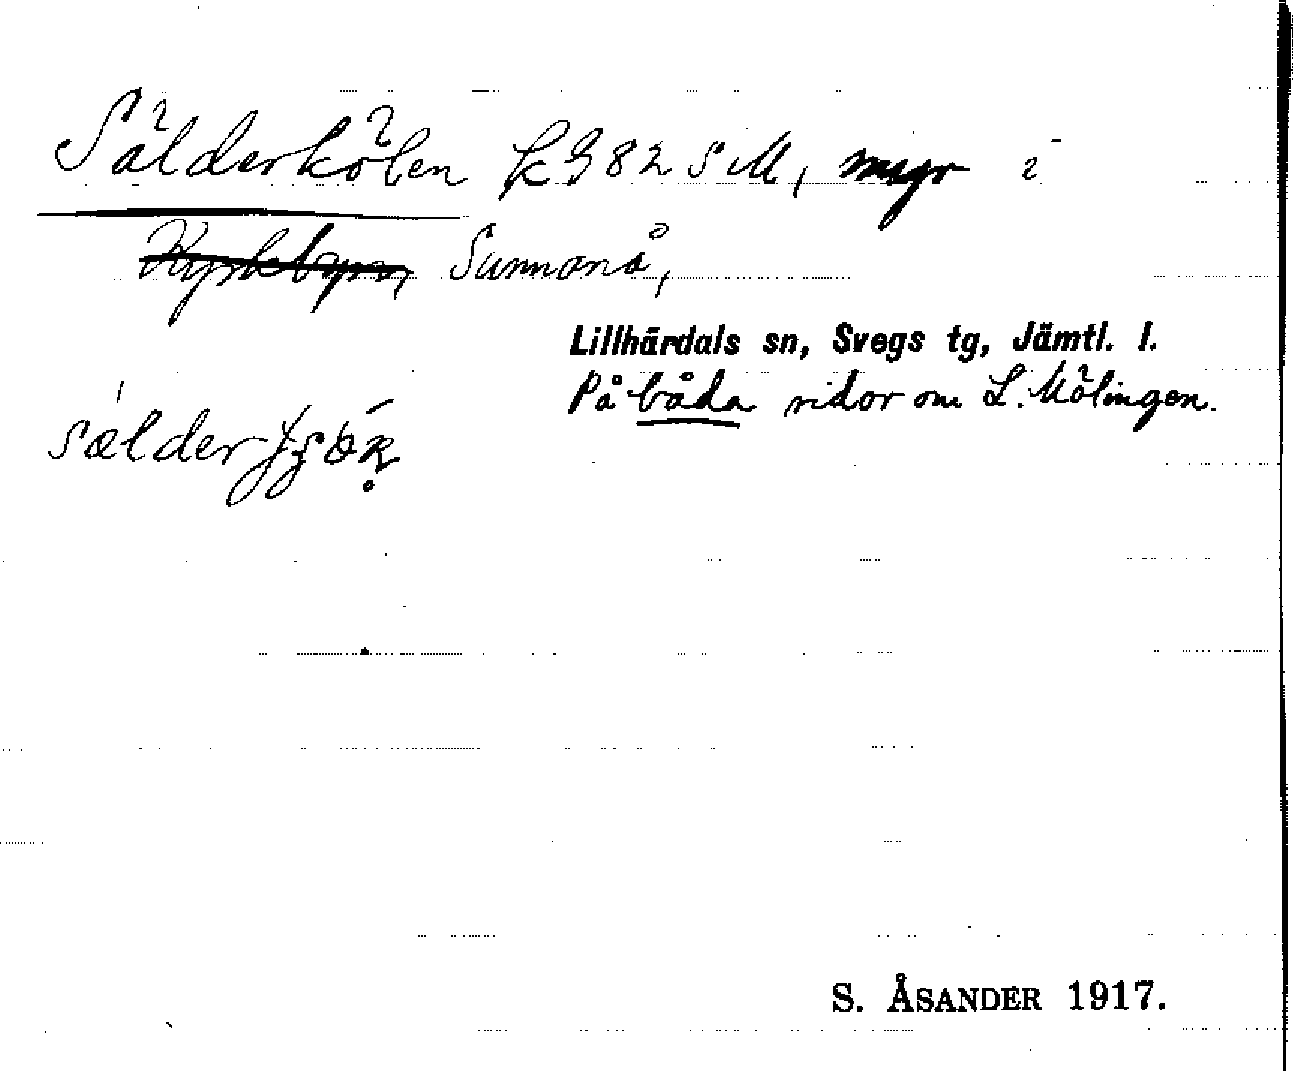 Sälderkölen k 982 SM, myr i
Kyrkbyn, Sunnanå,
Lillhärdals sn, Svegs tg, Jämtl. l.
På båda sidor om L. Mölingen.
S. ÅSANDER 1917.